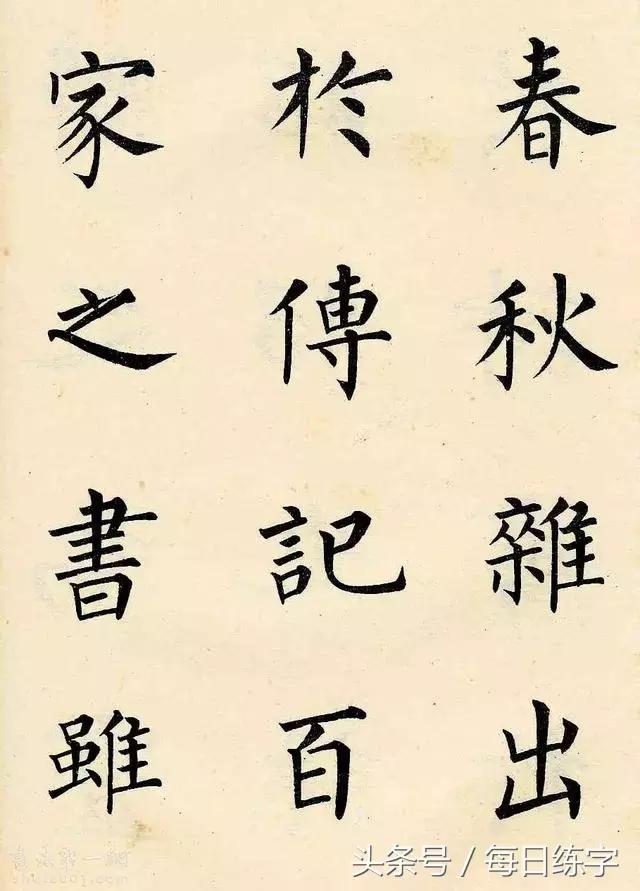 春秋雜出
於傳記百
家之書雖
头条号 / 每日练字